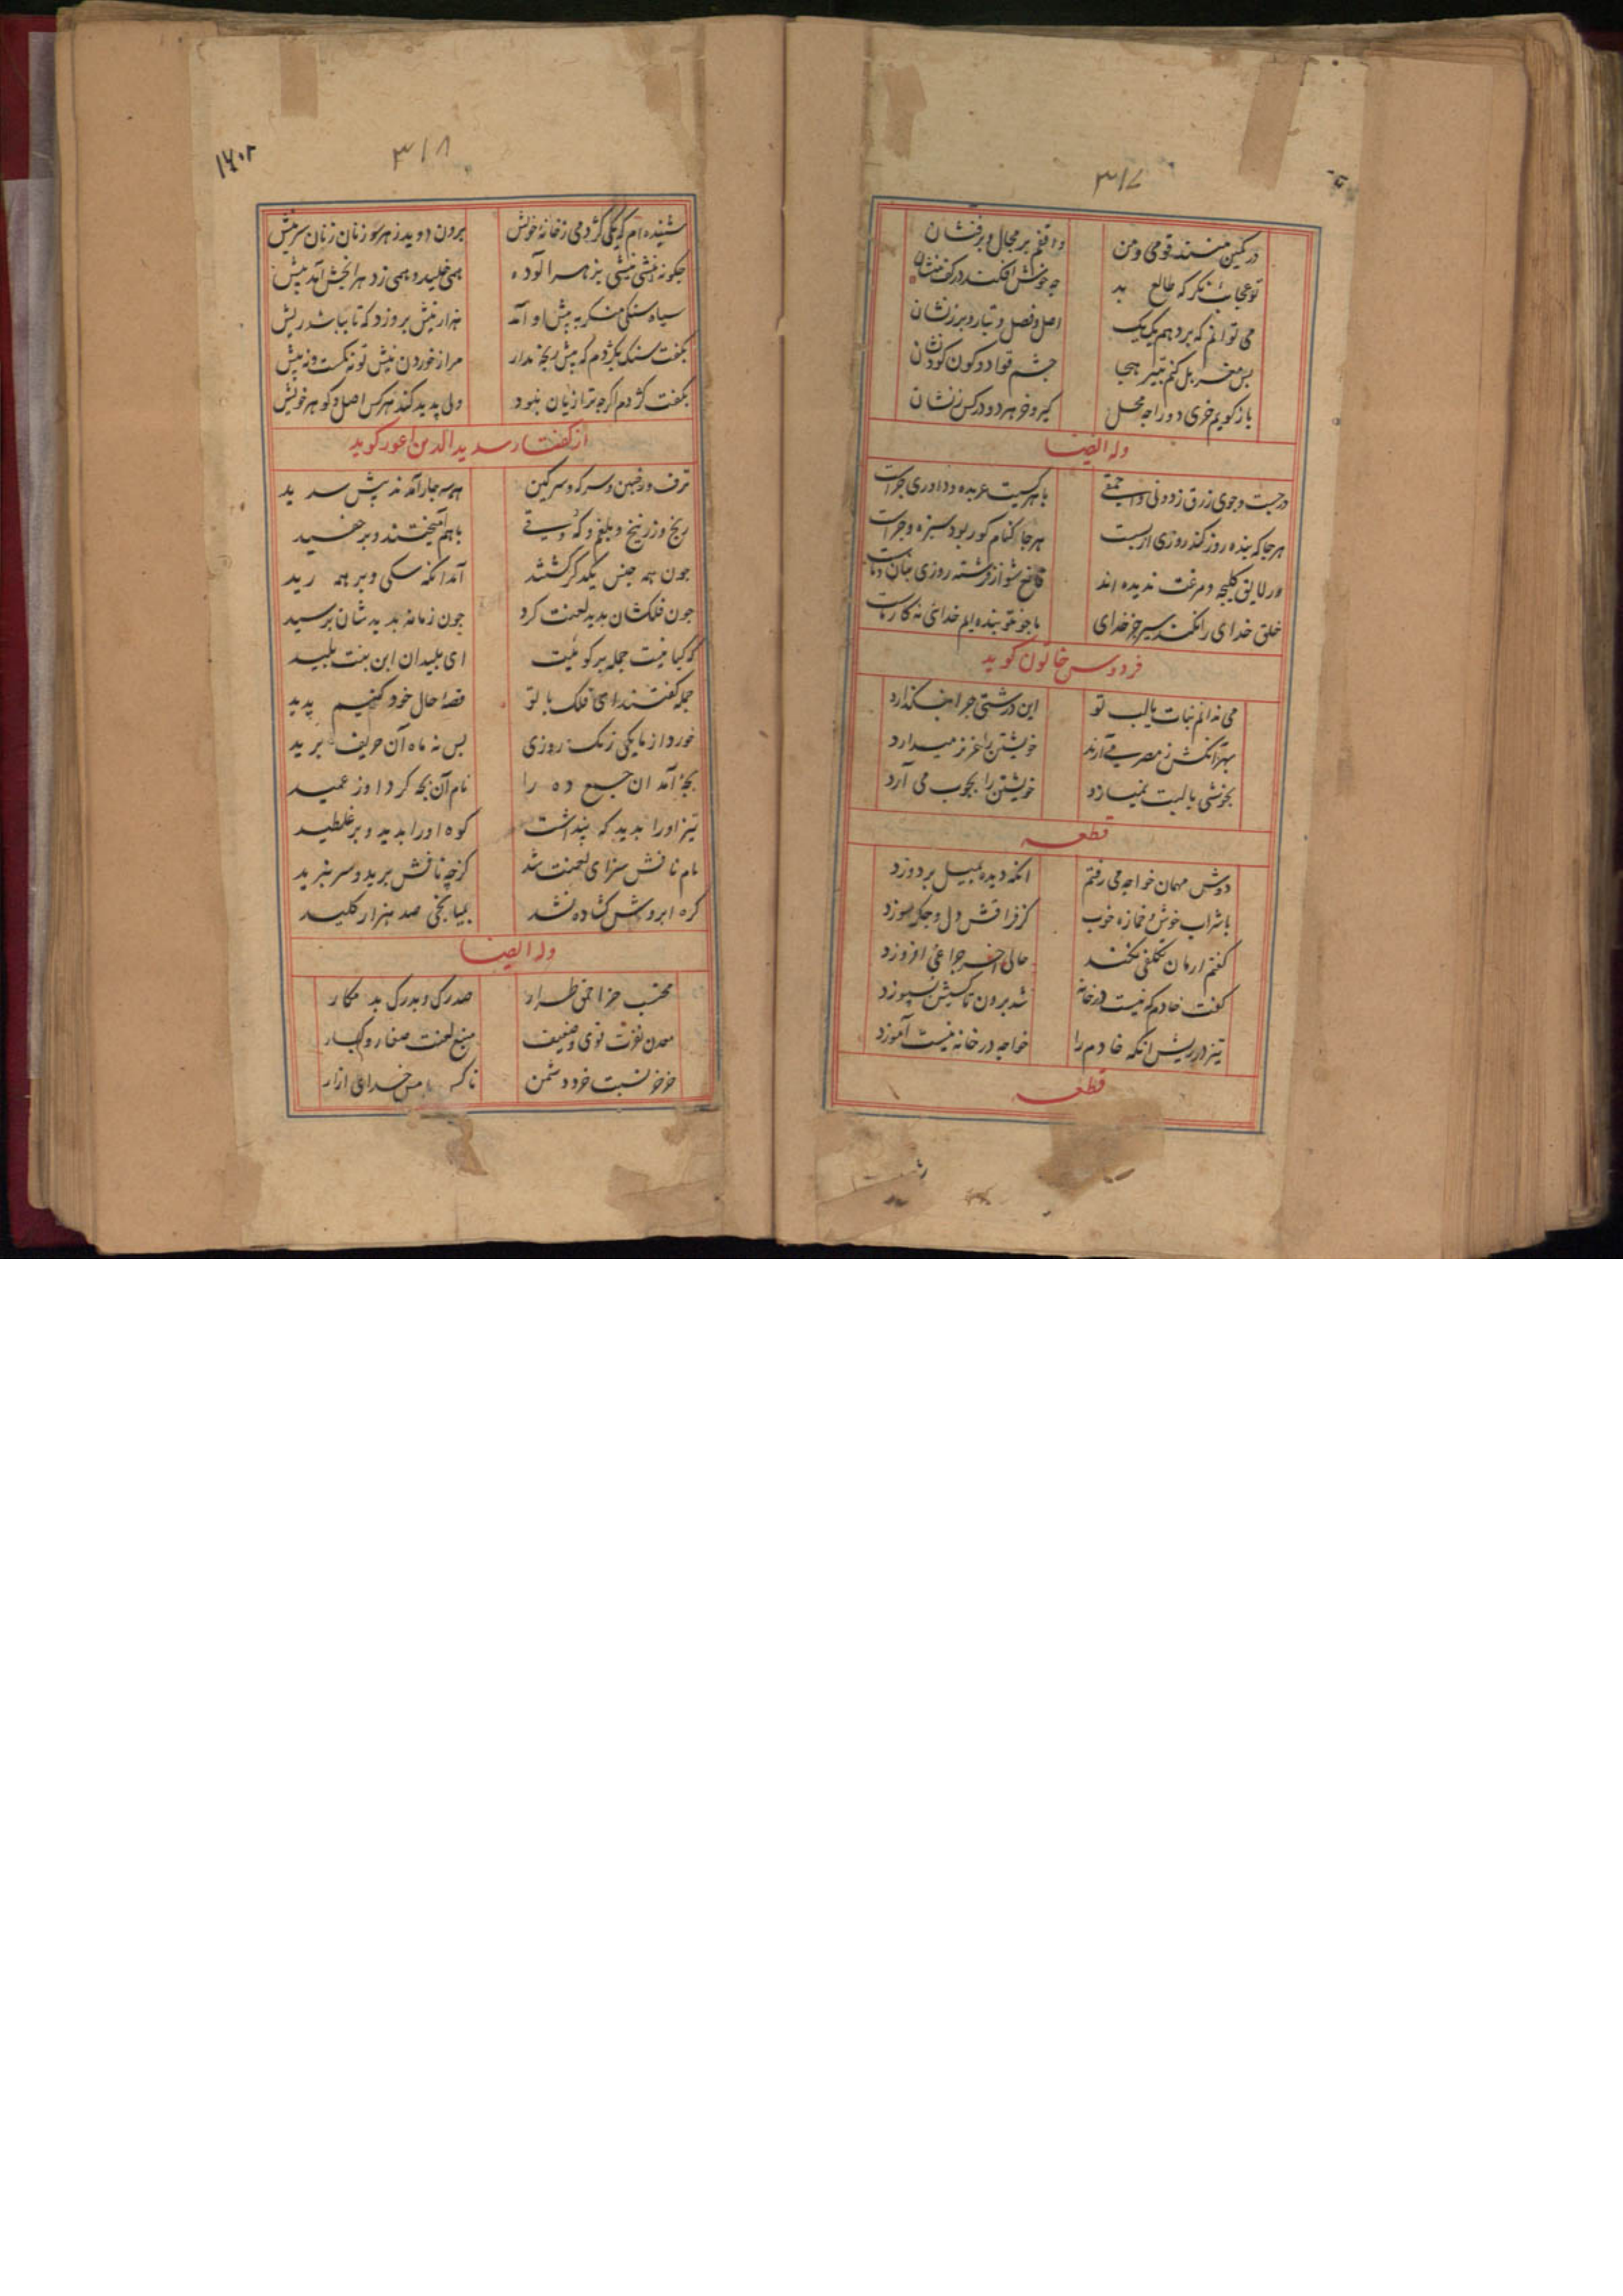 ۳۱۷
در کمین منند قومی و من واقفم بر مجال و بر فنشان
تو عجایب نکر که طالع بد چه خوش افکند در کف منشان
می توانم که بر دهم یک یک اصل و فصل و تبار و برزنشان
پس بغربل کنم بتیر هجا چشم قواد و کون کودنشان
باز کویم خری دو را چه محل کیر و خر هر دو در کس زنشان
وله ایضا
در جست و جوی رزق ز دونی و احمقی با هر کسیت عربده و داوری چراست
هر جا که بنده روز کند روزی از پست هر جا کنام کور بود سبزه و چراست
ور لایق کلیچه و مرغت ندیده اند قانع شو از فرشته روزی بنان و ماست
خلق خدای را نکند سیر جز خدای ما جو تو بنده ایم خدائی نه کار ماست
فردوس خاتون کوید
می ندانم نبات با لب تو این درشتی چرا همیکذارد
بهر آنکش ز مصر می آرند خویشتن را عزیز میدارد
بخوشی با لبت نمیسازد خویشتن را بچوب می آرد
قطعه
دوش مهمان خواجه می رفتم انکه دیده ببیل بر دوزد
با شراب خوش و خمازه خوب کز فراقش دل و جکر سوزد
کفتم ار مان تکلفی نکند حالی اخر چراغی افروزد
کفت خادم که نیست در خانه شد برون تا کسیش بسپوزد
تیز در ریش انکه خادم را خواجه در خانه نیست آموزد
قطعه
۳۱۸
شنیده ام که یکی کژدمی ز خانهٔ خویش برون دوید ز هر سو زنان زنان سر نیش
چکونه نیشی نیشی بزهر آلوده همی خلید و همی زد هر انچش آمد پیش
سیاه سنکی منکر به پیش او آمد هزار نیش برو زد که تا بباشد ریش
بکفت سنک بکژدم که پیش رنجه مدار مرا ز خوردن نیش تو نه کمست و نه بیش
بکفت کژدم اکر چه ترا زیان نبود ولی پدید کند هر کس اصل و کوهر خویش
از کفتار سدید الدین اعور کوید
ترف و رخبین و سرکه و سرکین هر چهار آمدند پیش سدید
ریخ و زرنیخ و بلغم و که و قی با هم آمیختند و بر جفسید
چون همه جنس یکدکر کشتند آمد انکه سکی و بر همه رید
چون فلکشان بدید لعنت کرد چون زمانه بدیدشان برسید
که کیانیت جمله بر کوئیت ای پلیدان ابن بنت پلید
جمله کفتند ای فلک با تو قصهٔ حال خود کنیم پدید
خورد از ما یکی زنک روزی پس نه ماه آن حریف برید
بچهٔ آمد ان جمع ده را نام آن بچه کرد او ز عمید
تیز او را بدید که پنداشت کوه او را بدید و بر غلطید
مام نافش سزای لعنت شد کز چه نافش برید و سر نبرید
کره ابروش کشاده نشد بمیانجی صد هزار کلید
وله ایضا
محتسب خر احمق طرار صدرک و بدرک بد مکار
معدن نفرت قوی و ضعیف منبع لعنت صغار و کبار
خدای ازار